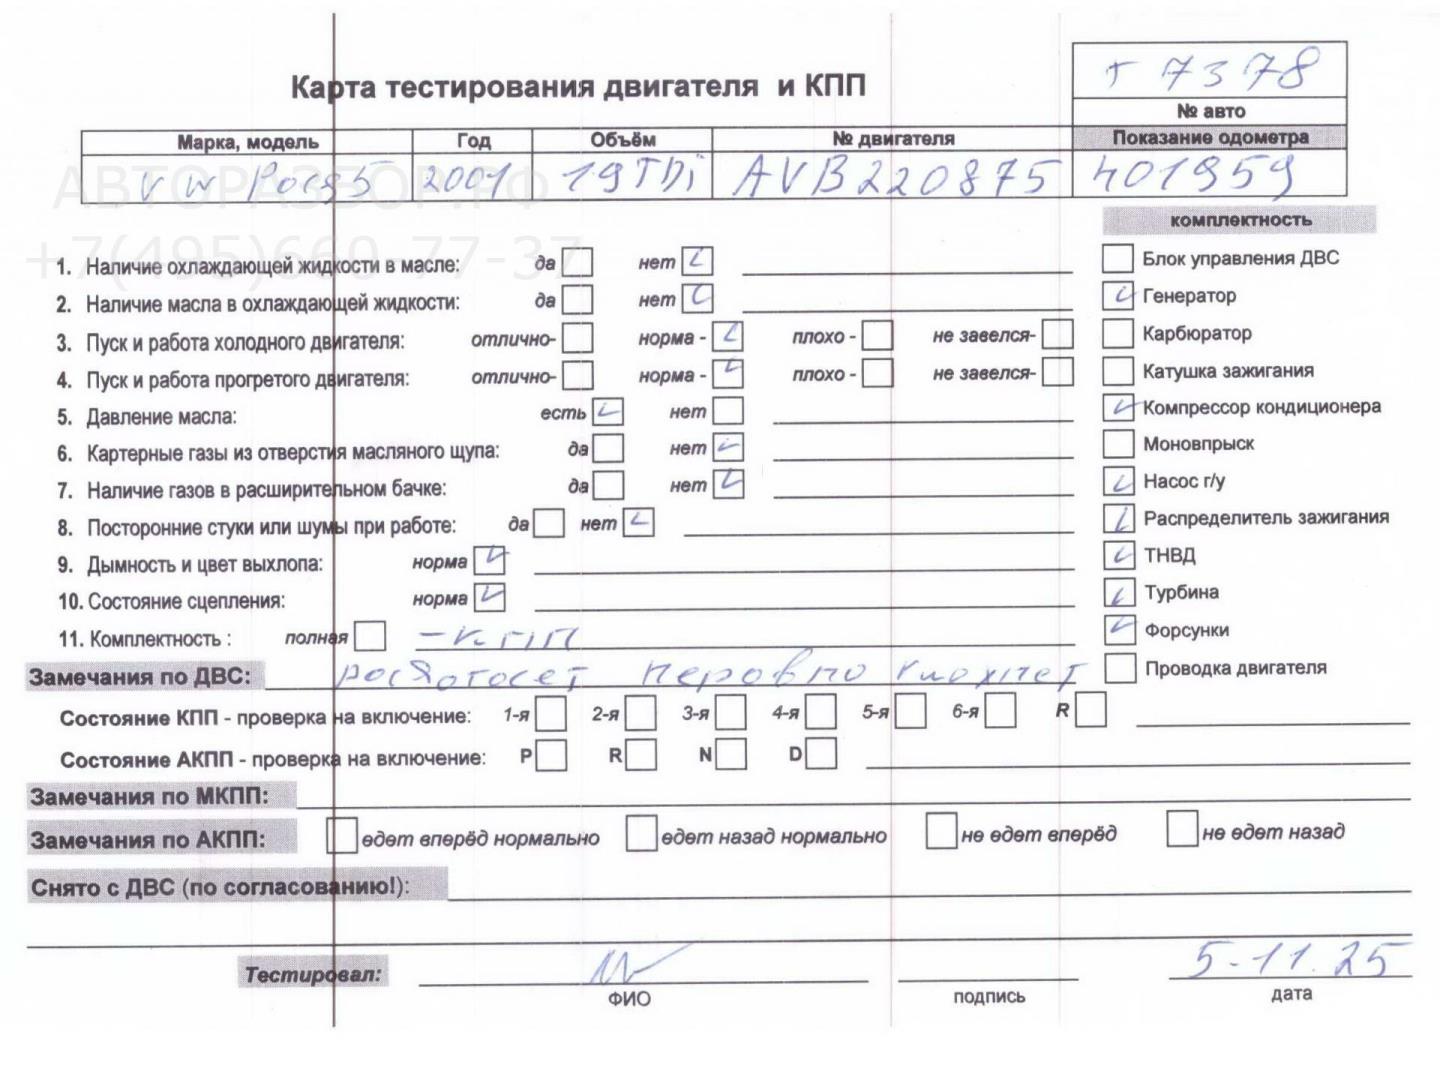 Карта тестирования двигателя и КПП
т 7378
№ авто
Марка, модель Год Объём № двигателя Показание одометра
VW 2001 19TDi AVB220875 401959
АВТОРАЗБОР.РФ
+7(495)660-77-37
комплектность
1. Наличие охлаждающей жидкости в масле: да нет
2. Наличие масла в охлаждающей жидкости: да нет
3. Пуск и работа холодного двигателя: отлично- норма - плохо - не завелся-
4. Пуск и работа прогретого двигателя: отлично- норма - плохо - не завелся-
5. Давление масла: есть нет
6. Картерные газы из отверстия масляного щупа: да нет
7. Наличие газов в расширительном бачке: да нет
8. Посторонние стуки или шумы при работе: да нет
9. Дымность и цвет выхлопа: норма
10. Состояние сцепления: норма
11. Комплектность : полная - КПП
Блок управления ДВС
Генератор
Карбюратор
Катушка зажигания
Компрессор кондиционера
Моновпрыск
Насос г/у
Распределитель зажигания
ТНВД
Турбина
Форсунки
Проводка двигателя
Замечания по ДВС:
Состояние КПП - проверка на включение: 1-я 2-я 3-я 4-я 5-я 6-я R
Состояние АКПП - проверка на включение: P R N D
Замечания по МКПП:
Замечания по АКПП: едет вперёд нормально едет назад нормально не едет вперёд не едет назад
Снято с ДВС (по согласованию!):
Тестировал: 5-11.25
ФИО подпись дата